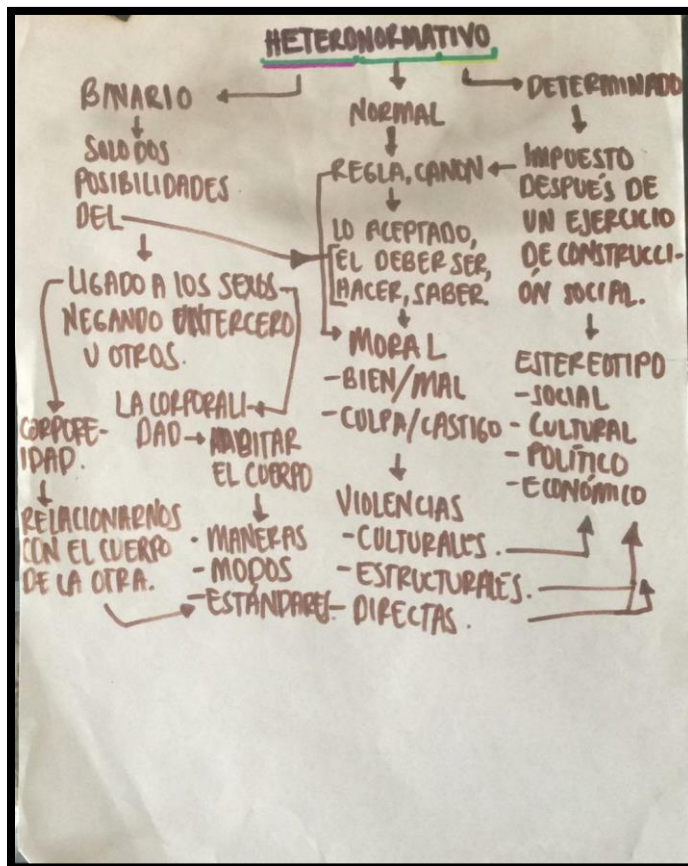 HETERONORMATIVO
BINARIO
SOLO DOS
POSIBILIDADES
DEL
LIGADO A LOS SEXOS
NEGANDO UN TERCERO
U OTROS.
CORPORE-
IDAD.
RELACIONARNOS
CON EL CUERPO
DE LA OTRA.
LA CORPORALI-
DAD
HABITAR
EL CUERPO
- MANERAS
- MODOS
- ESTÁNDARES
NORMAL
REGLA, CANON
LO ACEPTADO,
EL DEBER SER,
HACER, SABER.
MORAL
- BIEN/MAL
- CULPA/CASTIGO
VIOLENCIAS
- CULTURALES.
- ESTRUCTURALES.
- DIRECTAS.
DETERMINADO
IMPUESTO
DESPUÉS DE
UN EJERCICIO
DE CONSTRUCCI-
ÓN SOCIAL.
ESTEREOTIPO
- SOCIAL
- CULTURAL
- POLÍTICO
- ECONÓMICO